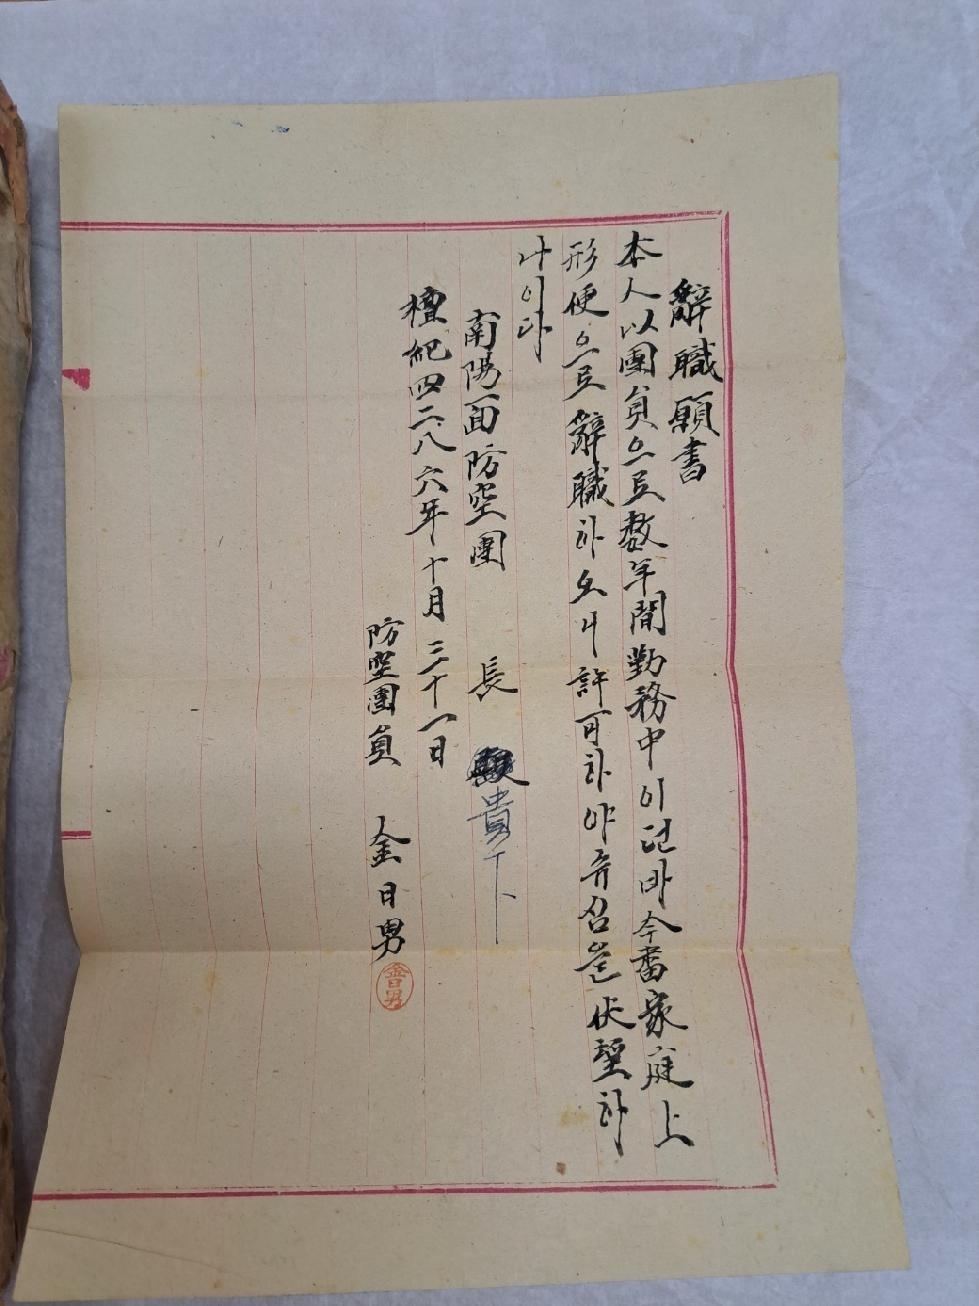 辭職願書
本人以團員으로数年間勤務中이던바今番家庭上
形便으로辭職하오니許可하야주심을伏望하
나이다
南陽面防空團 長 貴下
檀紀四二八六年十月三十一日
防空團員 金日男
金日男